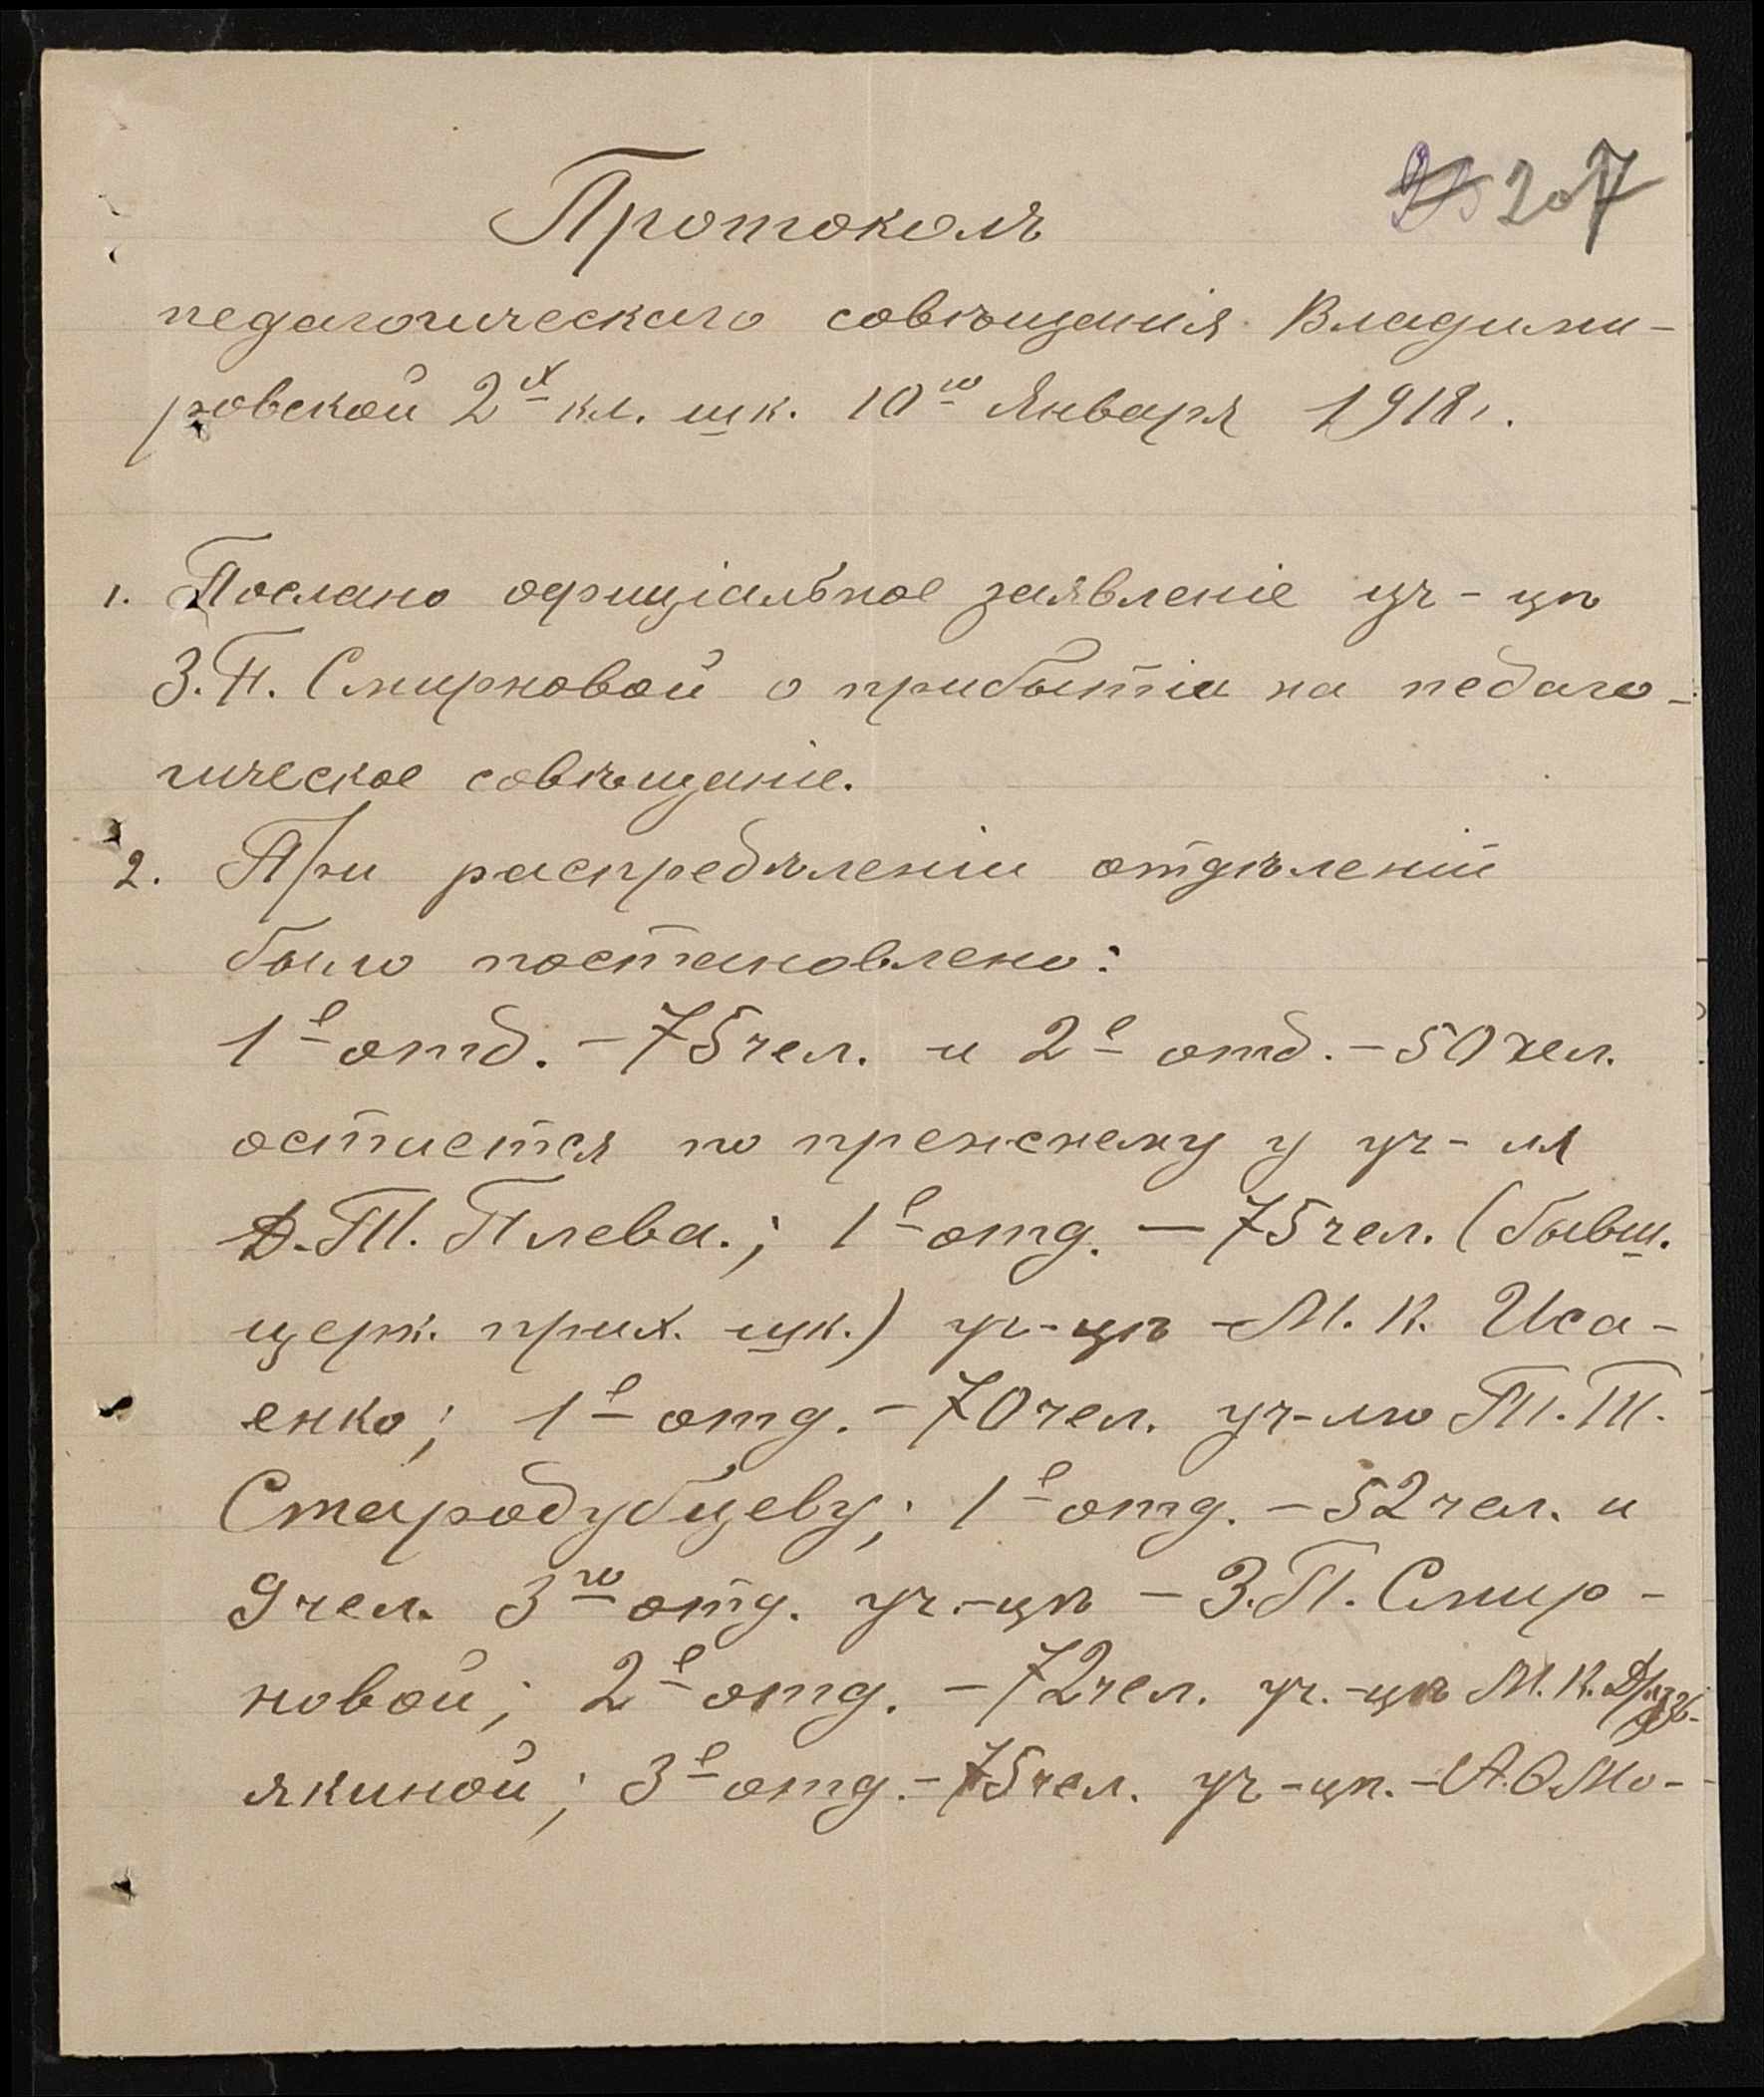 207
Протоколъ
педагогическаго совѣщанія Владими-
ровской 2х кл. шк. 10го Января 1918 г.
1. Послано оффиціальное заявленіе уч-цѣ
З. П. Смирновой о прибытіи на педаго-
гическое совѣщаніе.
2. При распредѣленіи отдѣленій
было постановлено:
1е отд. - 75 чел. и 2е отд. - 50 чел.
остается по прежнему у уч-ля
Д. Т. Плева.; 1е отд. - 75 чел. (бывш.
церк. прих. шк.) уч-цѣ - М. К. Иса-
енко; 1е отд. - 70 чел. уч-лю Т. Т.
Стародубцеву; 1е отд. - 52 чел. и
9 чел. 3го отд. уч.-цѣ - З. П. Смир-
новой; 2е отд. - 72 чел. уч.-цѣ М. К.
якиной; 3е отд. - 75 чел. уч-цѣ. - А. О. Мо-